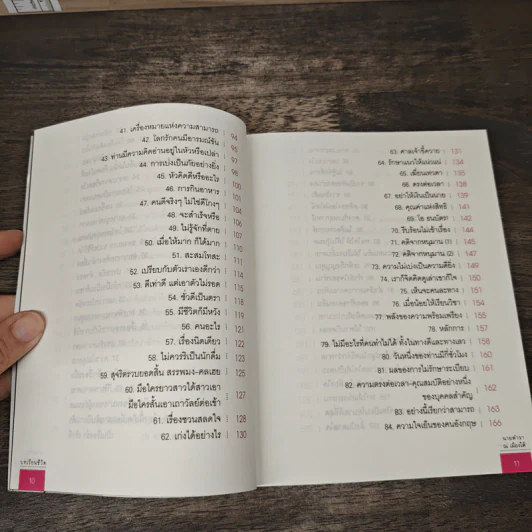 41. เครื่องหมายแห่งความสามารถ | 94
42. โลกรักคนมีอารมณ์ขัน | 95
43. ท่านมีความคิดอ่านอยู่ในหัวหรือเปล่า | 96
44. การเบ่งเป็นภัยอย่างยิ่ง | 97
45. หัวคิดดีหรืออะไร | 98
46. การกินอาหาร | 100
47. คนดีจริงๆ ไม่ใช่ดีโกงๆ | 101
48. จะสำเร็จหรือ | 104
49. ไม่รู้จักที่ตาย | 106
50. เมื่อให้มาก ก็ได้มาก | 110
51. สะสมโทสะ | 111
52. เปรียบกับตัวเราเองดีกว่า | 112
53. ดีเท่าดี แต่เอาตัวไม่รอด | 114
54. ชั่วดีเป็นตรา | 115
55. มีชีวิตก็มีหวัง | 117
56. คนอะไร | 119
57. เรื่องนิดเดียว | 121
58. ไม่ควรริเป็นนักดื่ม | 123
59. สุจริตรวบยอดสิ้น สรรพมง-คลเฮย | 125
60. มือใครยาวสาวได้สาวเอา
มือใครสั้นเอาเถาวัลย์ต่อเข้า | 127
61. เรื่องชวนสลดใจ | 128
62. เก่งได้อย่างไร | 130
บทเรียนชีวิต
10
63. ศาลเจ้าชี้ควาย | 131
64. รักษาแนวให้แน่วแน่ | 134
65. | 135
66. ตรงต่อเวลา | 138
67. อย่าให้เงินเป็นนาย | 139
68. คุณค่าแห่งสิทธิ | 141
69. โอ อนนิตตา | 142
70. รีบร้อนไม่เข้าเรื่อง | 144
71. คติจากหนุมาน (1) | 145
72. คติจากหนุมาน (2) | 147
73. ความไม่เบ่งเป็นความดียิ่ง | 149
74. เราก็จิตคิดดูเล่าเขาก็ใจ | 150
75. เห็นจะคนละทาง | 151
76. เมื่อน้อยให้เรียนวิชา | 154
77. พลังของความพร้อมเพรียง | 155
78. หลักการ | 157
79. ไม่มีอะไรที่คนทำไม่ได้ ทั้งในทางดีและทางเลว | 158
80. วันหนึ่งของท่านมีกี่ชั่วโมง | 160
81. ผลของการไม่รักษาระเบียบ | 161
82. ความตรงต่อเวลา-คุณสมบัติอย่างหนึ่ง
ของบุคคลสำคัญ | 162
83. อย่างนี้เรียกว่าสามารถ | 163
84. ความใจเย็นของคนอังกฤษ | 166
นายตำรา
ณ เมืองใต้
11